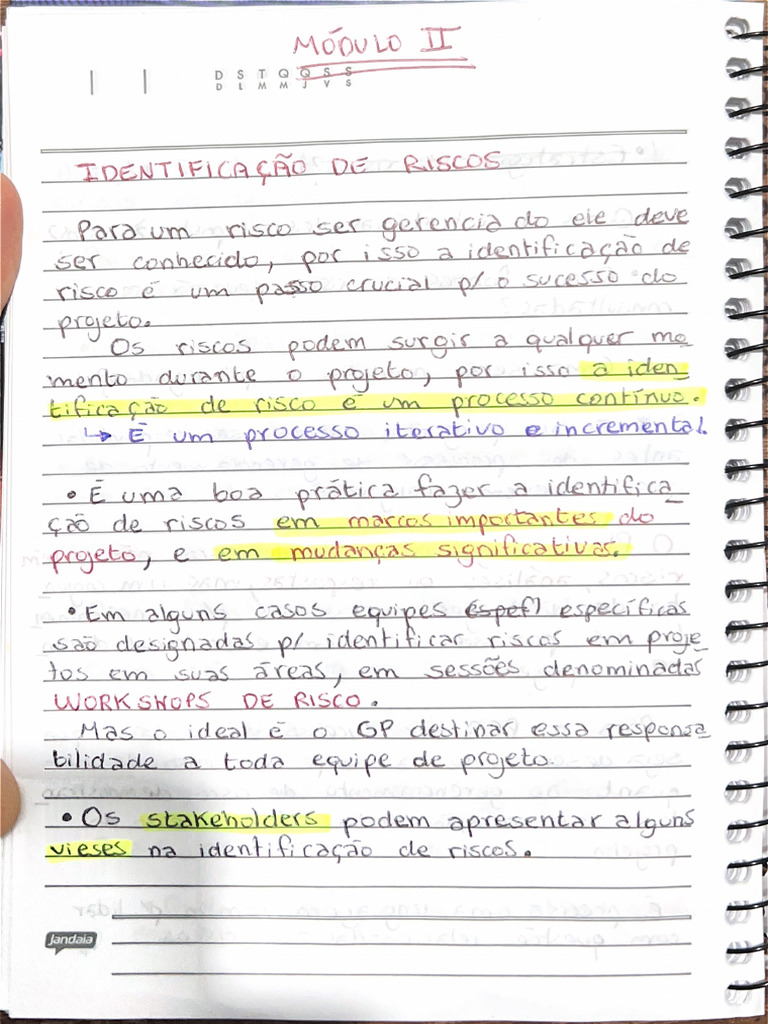 MÓDULO II
D S T Q Q S S
D L M M J V S
IDENTIFICAÇÃO DE RISCOS
Para um risco ser gerenciado ele deve
ser conhecido, por isso a identificação de
risco é um passo crucial p/ o sucesso do
projeto.
Os riscos podem surgir a qualquer mo
mento durante o projeto, por isso a iden_
tificação de risco é um processo contínuo.
↳ É um processo iterativo e incremental.
• É uma boa prática fazer a identifica_
ção de riscos em marcos importantes do
projeto, e em mudanças significativas.
• Em alguns casos equipes (espef) específicas
são designadas p/ identificar riscos em proje
tos em suas áreas, em sessões denominadas
WORKSHOPS DE RISCO.
Mas o ideal é o GP destinar essa responsa_
bilidade a toda equipe de projeto.
• Os stakeholders podem apresentar alguns
vieses na identificação de riscos.
Jandaia